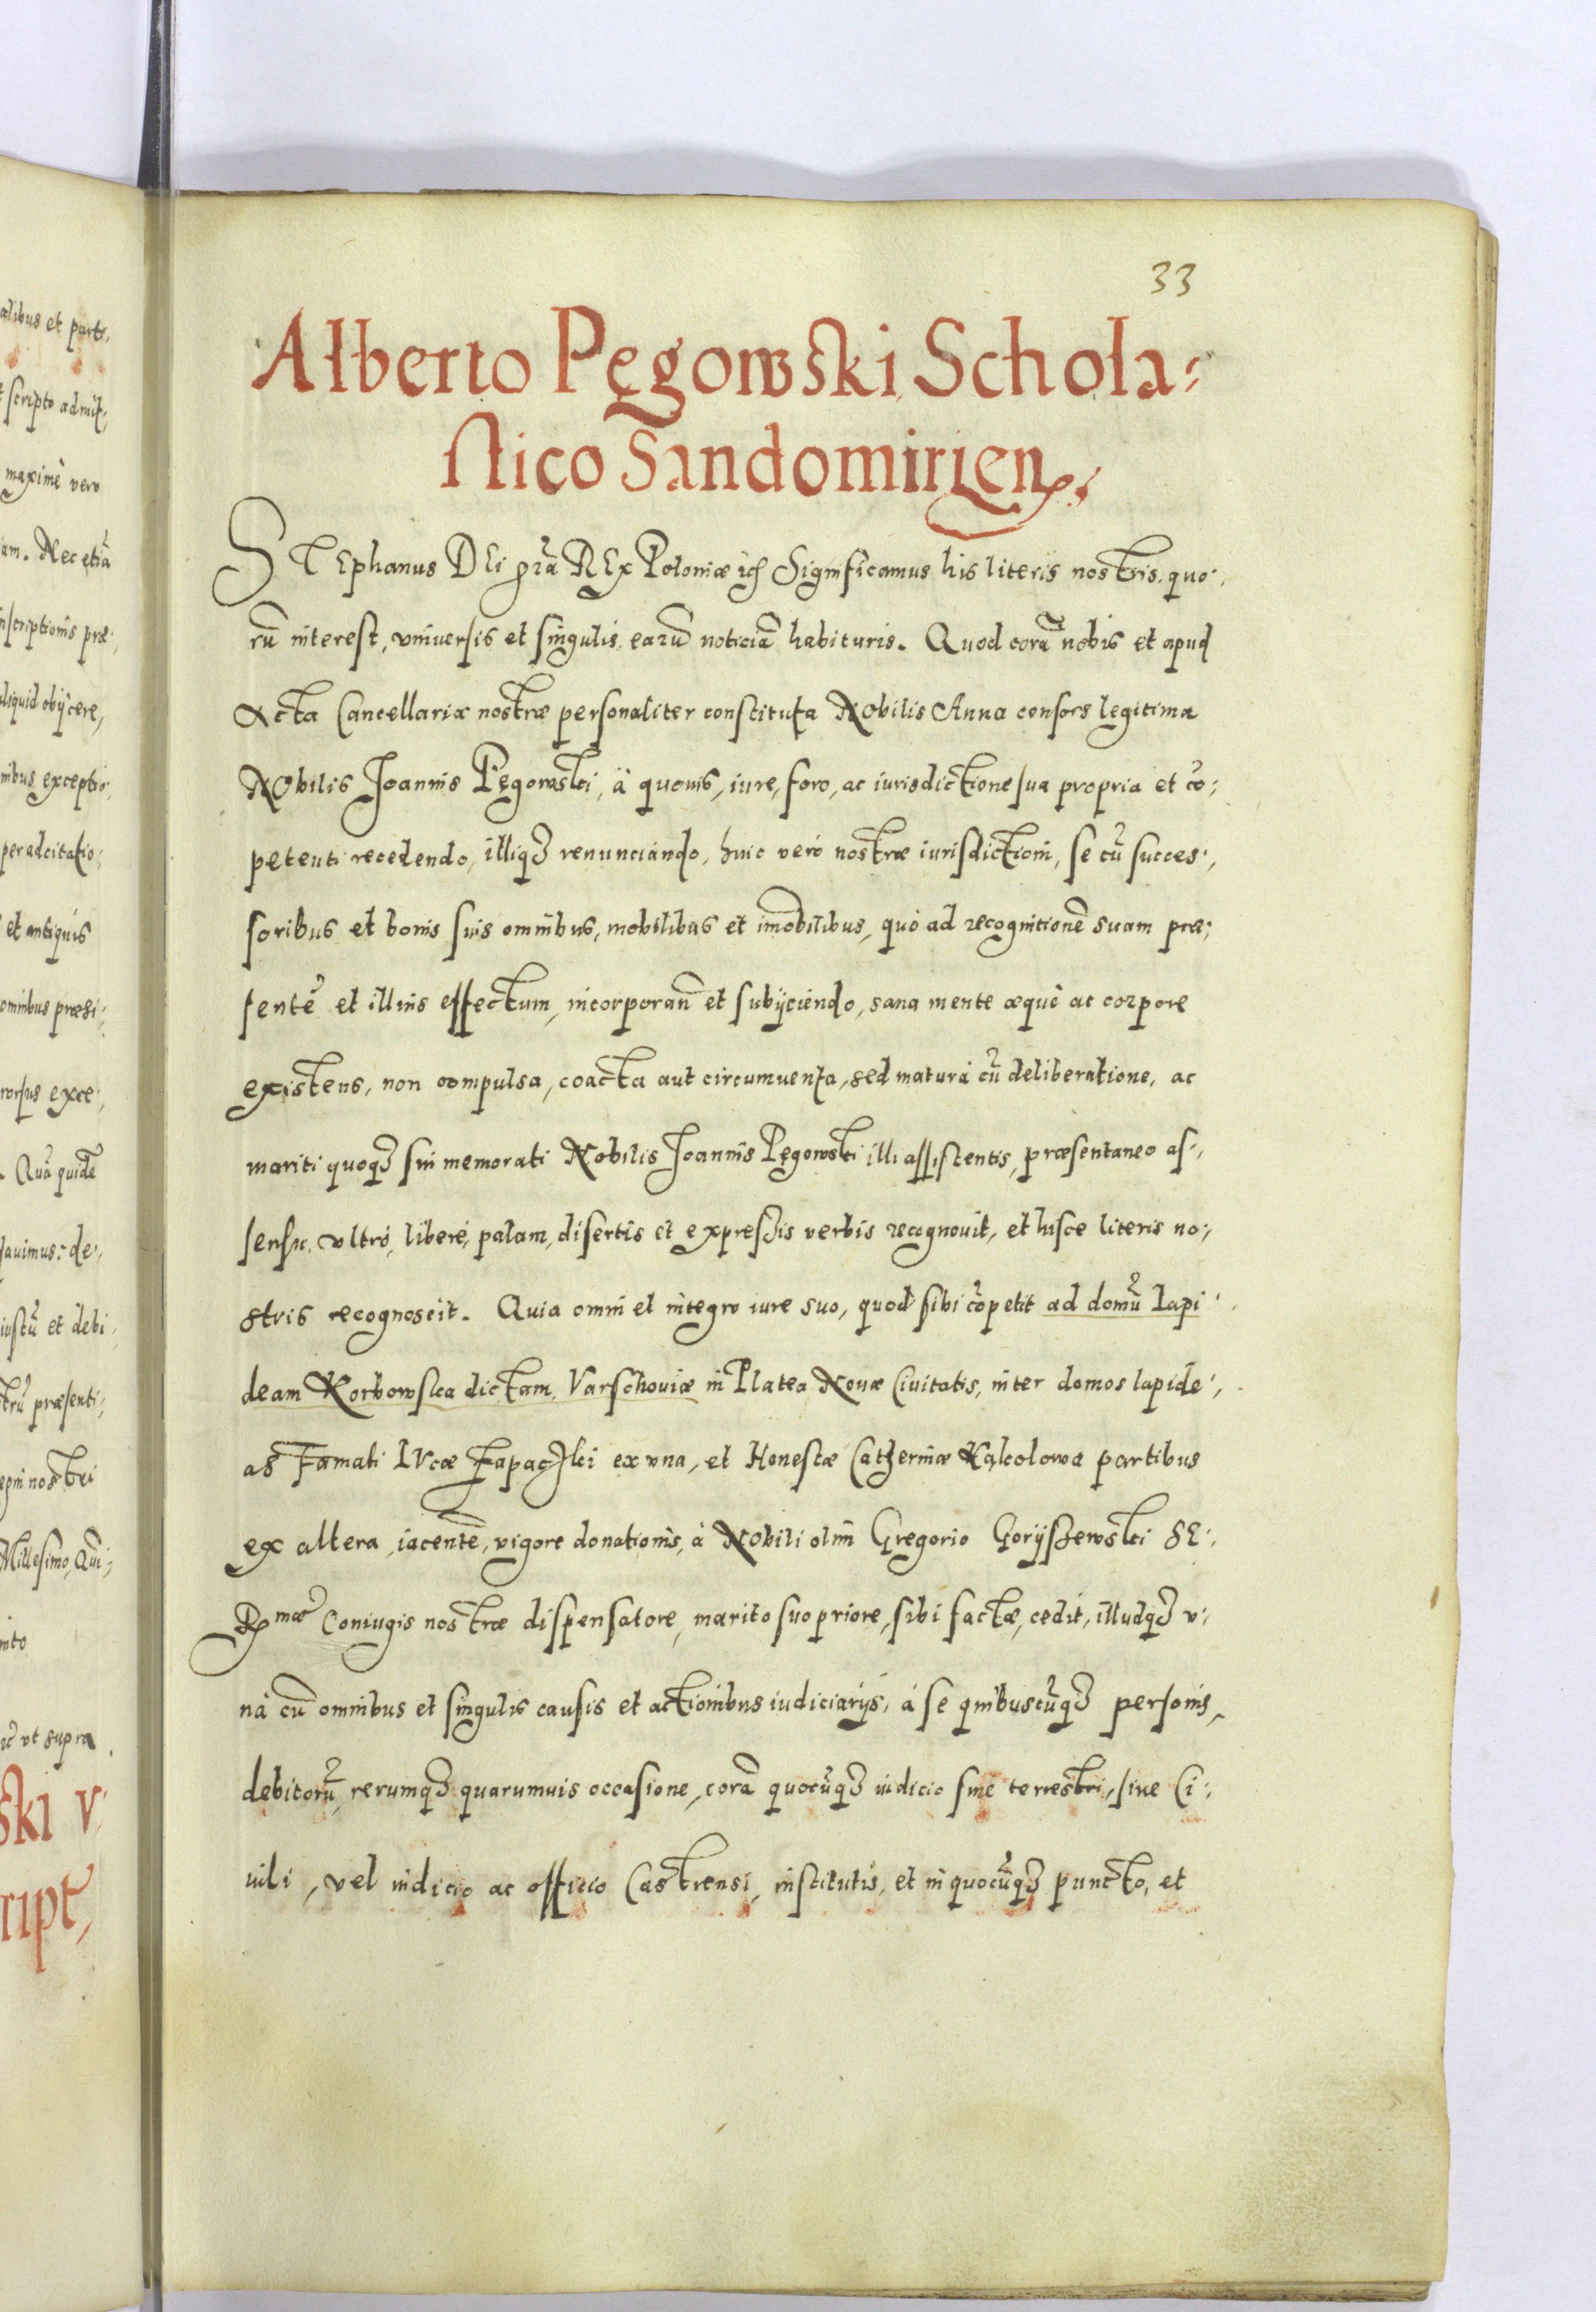 alibus et parti,
scripto admit,
maximè vero
am. Nec etiã
nscriptionis præ,
aliquid obijcere,
nibus exceptio,
per adcitatio,
et antiquis
omnibus præsi,
rorsus exce,
. Quã quidẽ
de,
iustũ et debi,
trũ præsenti,
nostri
Millesimo, Qui,
ut supra
ski V
ript,
33
Alberto Pęgowski Schola,
stico Sandomirien,
STEphanus DEi grã REx Poloniæ etc Significamus his literis nostris, quo,
rũ interest, vniuersis et singulis, earũ noticiã habituris. Quod corã nobis et apud
Acta Cancellariæ nostræ personaliter constituta Nobilis Anna consors legitima
Nobilis Joannis Pęgowski, à quouis, iure, foro, ac iurisdictione sua propria et cõ,
petenti recedendo, illiq3 renunciando, huic verò nostræ iurisdictioni, se cũ succes,
soribus et bonis suis omnibus, mobilibus et imobilibus, quò ad recognitionẽ suam præ,
sentẽ et illius effectum, incorporanð et subijciendo, sana mente æquè ac corpore
existens, non compulsa, coacta aut circumuenta, sed matura cũ deliberatione, ac
mariti quoq3 sui memorati Nobilis Joannis Pęgowski illi assistentis, præsentaneo as,
sensu, vltrò, liberè, palam, disertis et expressis verbis recognouit, et hisce literis no,
stris recognoscit. Quia omni et integro iure suo, quod sibi cõpetit ad domũ lapi,
deam Korbowska dictam, Varschouiæ in Platea Nouæ Ciuitatis, inter domos lapide,
as Famati LVcæ ex vna, et Honestæ Catherinæ partibus
ex altera, iacentẽ, vigore donationis, à Nobili olim Gregorio Goryszewski SE,
Rmæ Coniugis nostræ dispensatore, marito suo priore, sibi factæ, cedit, illudq3 v,
nà cũ omnibus et singulis causis et actionibus iudiciarijs, à se quibuscũq3 personis,
debitorũ, rerumq3 quarumuis occasione, corã quocũq3 iudicio siue terrestri, siue Ci,
uili, vel iudicio ac officio Castrensi, institutis, et in quocũq3 puncto, et